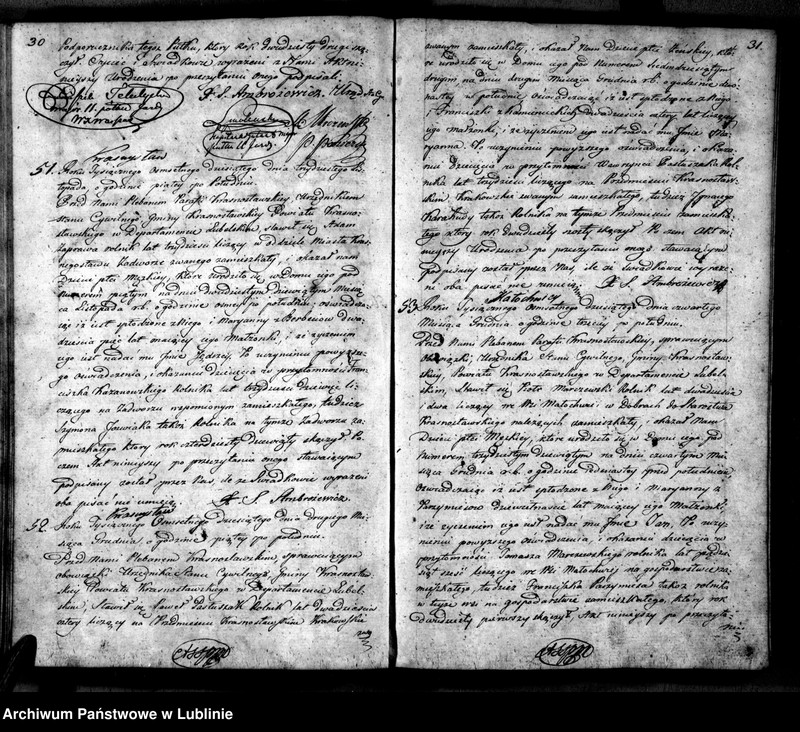 30
Podporucznik tegoż Pułku, który rok dwudziesty drugi skoń-
czył. Oycieć i świadkowie wyrażeni z Nami Akt ni-
nieyszy Urodzenia po przeczytaniu onego podpisali.
X. S. Ambrozewicz
Krasnystaw
51. Roku Tysiącznego Osmsetnego dziesiątego dnia trzydziestego Li-
stopada, o godzinie piątej po Południu.
Przed Nami Plebanem Parafii Krasnostawskiey, Urzędnikiem
Stanu Cywilnego Gminy Krasnostawskiey Powiatu Krasno-
stawskiego w Departamencie Lubelskim, stawił się Adam
Zaprawa rolnik lat trzydziestu liczący w dziele Miasta Kras-
negostawu Zadworze zwanego zamieszkały, i okazał nam
Dziecie płci Męzkiey, które urodziło się w Domu iego pod
Numerem piątym na dniu dwudziestym dziewiątym Miesią-
ca Listopada r.b. o godzinie osmey po południu, oświadcza-
iąc iż iest spłodzone z Niego i Maryanny z Berbeciow dwu-
dziestu pięć lat maiącey iego Małżonki, i że życzeniem
iego iest nadać mu Jmie Jędrzey. Po uczynieniu powyższe-
go oświadczenia, i okazaniu dziecięcia w przytomności Fran-
ciszka Kazanowskiego Rolnika lat trzydzieści dziewięć li-
czącego na Zadworzu wspomnionym zamieszkałego, tudzież
Szymona także Rolnika na tymże Zadworzu za-
mieszkałego który rok czterdziesty dziewiąty skączył. Po-
czem Akt niniejszy po przeczytaniu onego stawaiącym
Podpisany został przez Nas, ile że Świadkowie wyrażeni
oba pisać nie umieią. X. S. Ambrozewicz
Krasnystaw
52. Roku Tysiącznego Osmsetnego dziesiątego dnia drugiego Mie-
siąca Grudnia, o godzinie piątey po południu.
Przed Nami Plebanem Krasnostawskim, sprawuiącym
obowiązki Urzędnika Stanu Cywilnego Gminy Krasnosta-
wskiey Powiatu Krasnostawskiego w Departamencie Lubel-
skim, Stawił się Paweł Pastuszak Rolnik lat dwadzieścia
cztery liczący na Przedmieściu Krasnostawskim Krakowskie
zwa-
31.
zwanym zamieszkały, i okazał Nam Dziecie płci żeńskiey, któ-
re urodziło się w Domu iego pod Numerem Siedmdziesiątym
drugim, na dniu drugim Miesiąca Grudnia r.b. o godzinie dwu-
nastey w południe oświadczaiąc iż iest spłodzone z Niego
i Franciszki z Kamienieckich dwadzieścia cztery lat liczącey
iego małżonki, i że życzeniem iego iest nadać mu Jmie Ma-
ryanna. Po uczynieniu powyższego oświadczenia, i okaza-
niu Dziecięcia w przytomności Wawrzyńca Pastuszaka Rol-
nika lat trzydzieści liczącego na Przedmieściu Krasnostaw-
skim Krakowskie zwanym zamieszkałego, tudzież Jgnacego
także Rolnika na tymże Przedmieściu zamieszka-
łego który rok dwudziesty szósty skączył. Po czem Akt ni-
nieyszy Urodzenia po przeczytaniu onego stawaiącym
podpisany został przez Nas, ile że Świadkowie wyraże-
ni oba pisać nie umieią. X. S. Ambrozewicz
Małochwiey
53. Roku Tysiącznego Osmsetnego dziesiątego dnia czwartego
Miesiąca Grudnia o godzinie trzeciey po południu.
Przed Nami Plebanem Parafii Krasnostawskiey, sprawuiącym
obowiązki Urzędnika Stanu Cywilnego, Gminy Krasnostaw-
skiey, Powiatu Krasnostawskiego w Departamencie Lubel-
skim, Stawił się Piotr Marczewski Rolnik lat dwadzieścia
i dwa liczący we Wsi Małochwi w Dobrach do Starostwa
Krasnostawskiego należących zamieszkały, i okazał Nam
Dziecie płci Męskiey, które urodziło się w Domu iego pod
Numerem trzydziestym dziewiątym na dniu czwartym Mie-
siąca Grudnia r.b. o godzinie dziewiątey przed południem
oświadczaiąc iż iest spłodzone z Niego i Maryanny z
Parzymiesow dziewietnaście lat maiącey iego Małżonki,
i że życzeniem iego iest nadać mu Jmie Jan. Po uczy-
nieniu powyższego oświadczenia, i okazaniu dziecięcia w
przytomności Tomasza Marczewskiego rolnika lat pięćdzie-
siąt sześć liczącego we Wsi Małochwiey na gospodarstwie za-
mieszkałego, tudzież Franciszka Parzymiesa także rolnika
w teyże wsi na gospodarstwie zamieszkałego, który rok
dwudziesty pierwszy skączył. Akt niniejszy po przeczyta-
niu
Archiwum Państwowe w Lublinie